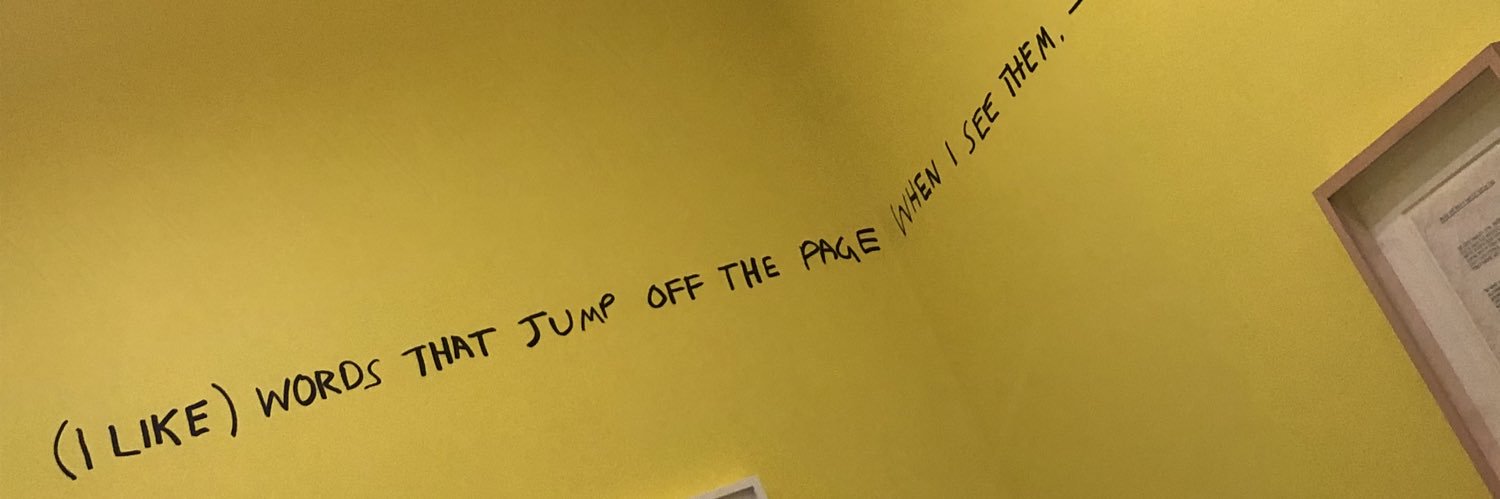 (I LIKE) WORDS THAT JUMP OFF THE PAGE WHEN I SEE THEM. —